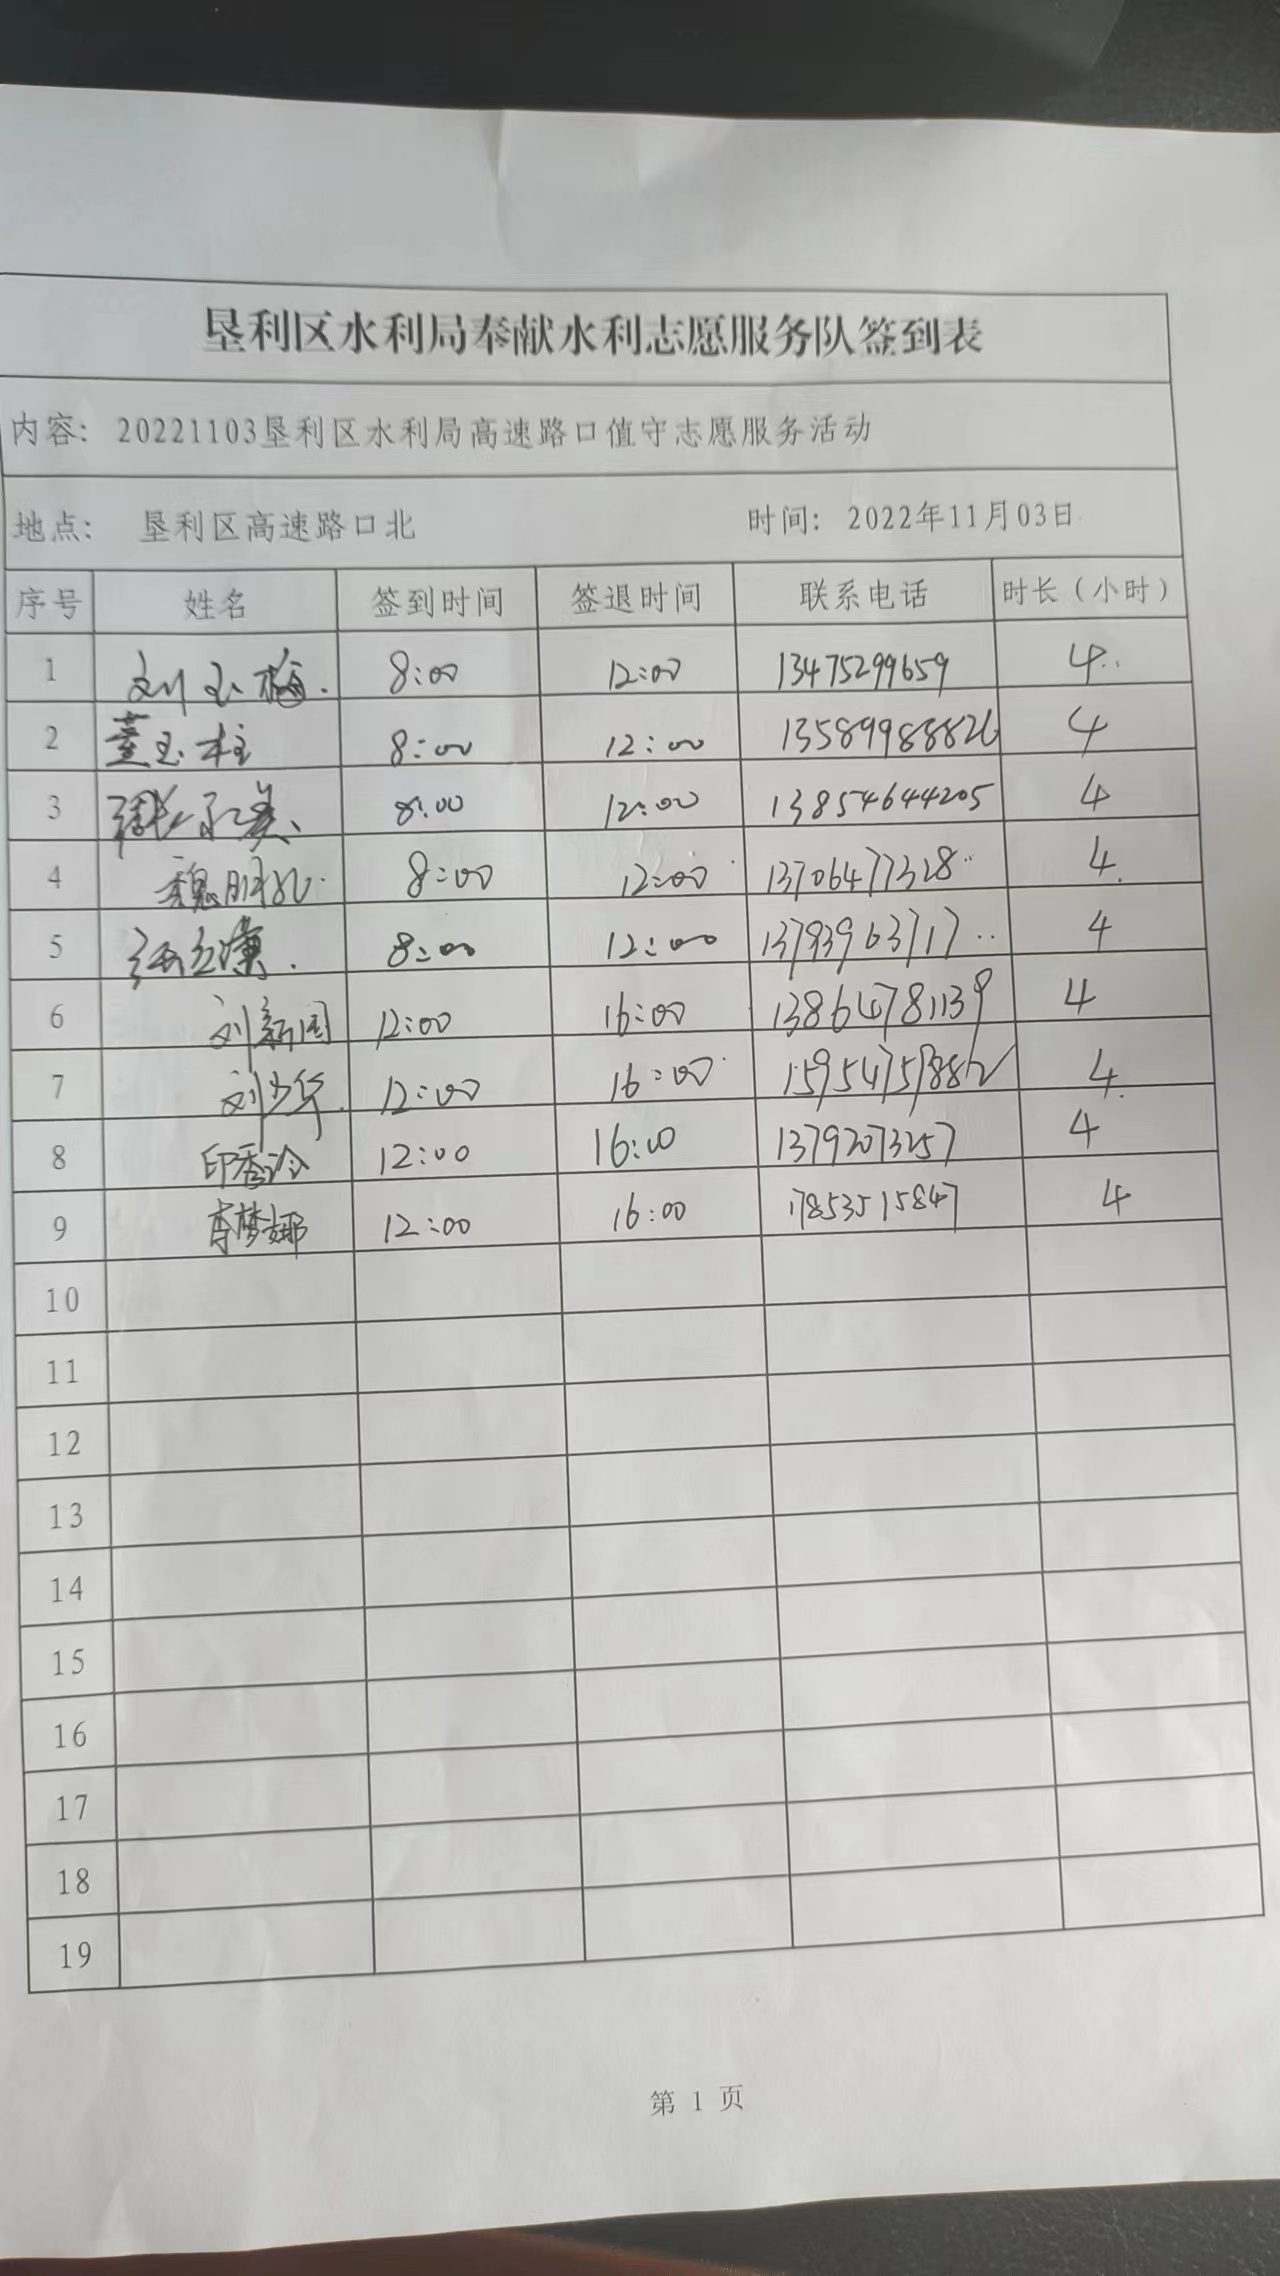 垦利区水利局奉献水利志愿服务队签到表
内容: 20221103垦利区水利局高速路口值守志愿服务活动
地点: 垦利区高速路口北 时间: 2022年11月03日
序号 姓名 签到时间 签退时间 联系电话 时长（小时）
1 刘玉梅. 8:00 12:00 13475299659 4..
2 董玉柱 8:00 12:00 13589988826 4
3 8:00 12:00 13854644205 4
4 魏 8:00 12:00 13706477328 4.
5 8:00 12:00 13793963717 4
6 刘新国 12:00 16:00 13864781139 4
7 刘少华. 12:00 16:00 15954757886 4.
8 印秀 12:00 16:00 13792073257 4
9 肖梦娜 12:00 16:00 17853515847 4
10
11
12
13
14
15
16
17
18
19
第 1 页